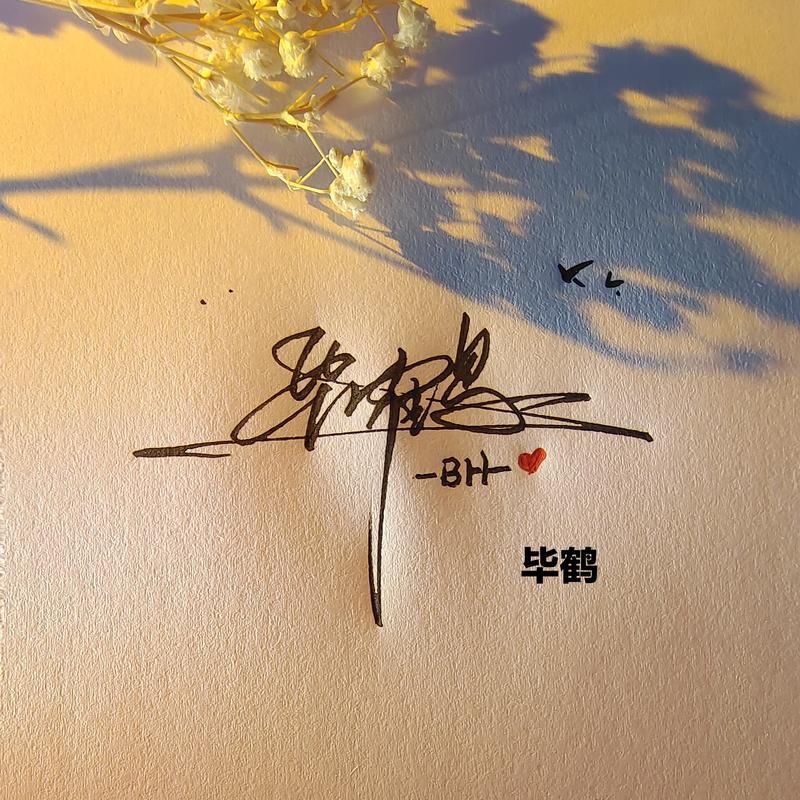 毕鹤
-BH-
毕鹤